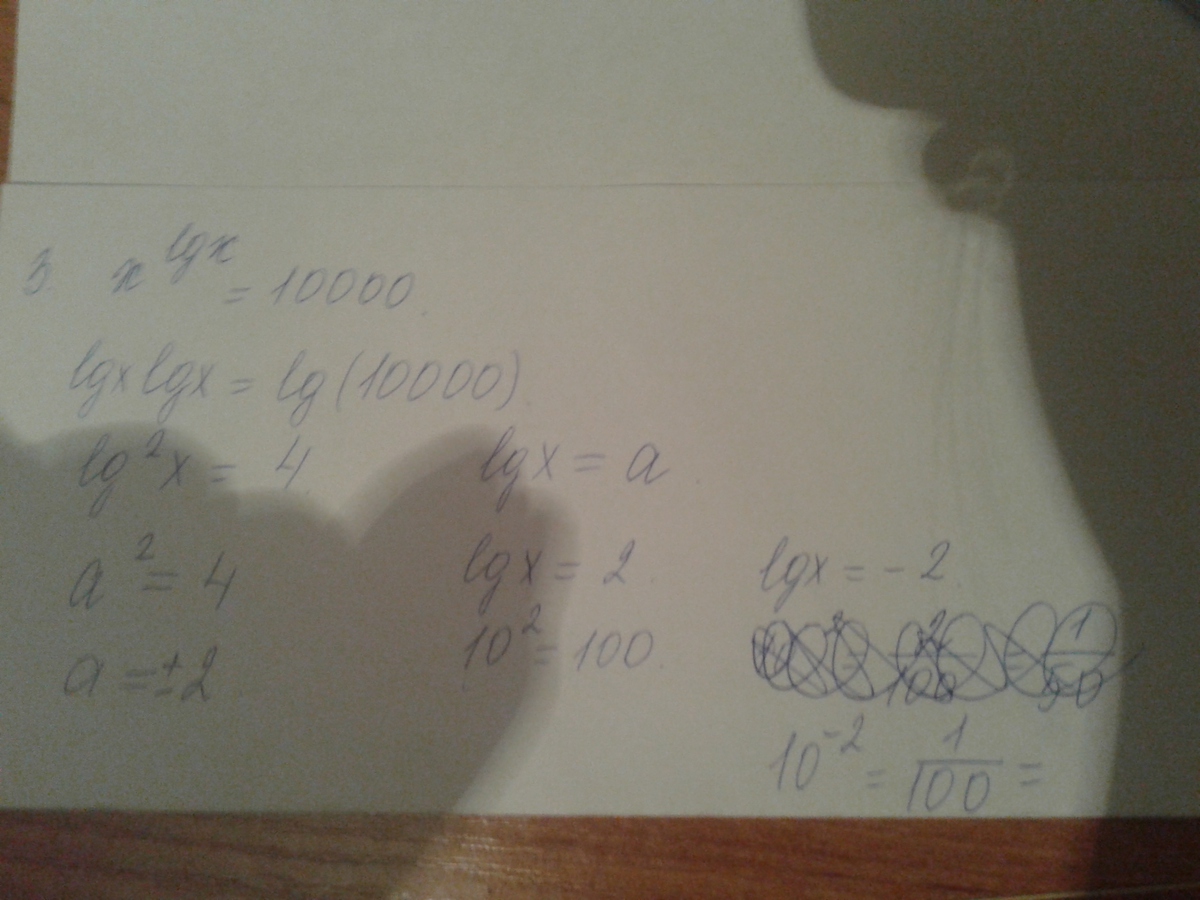 3. x^lgx = 10000.
lgx lgx = lg(10000).
lg²x = 4 lgx = a.
a² = 4 lgx = 2. lgx = -2.
a = ±2 10² = 100.
10⁻² = 1/100 =